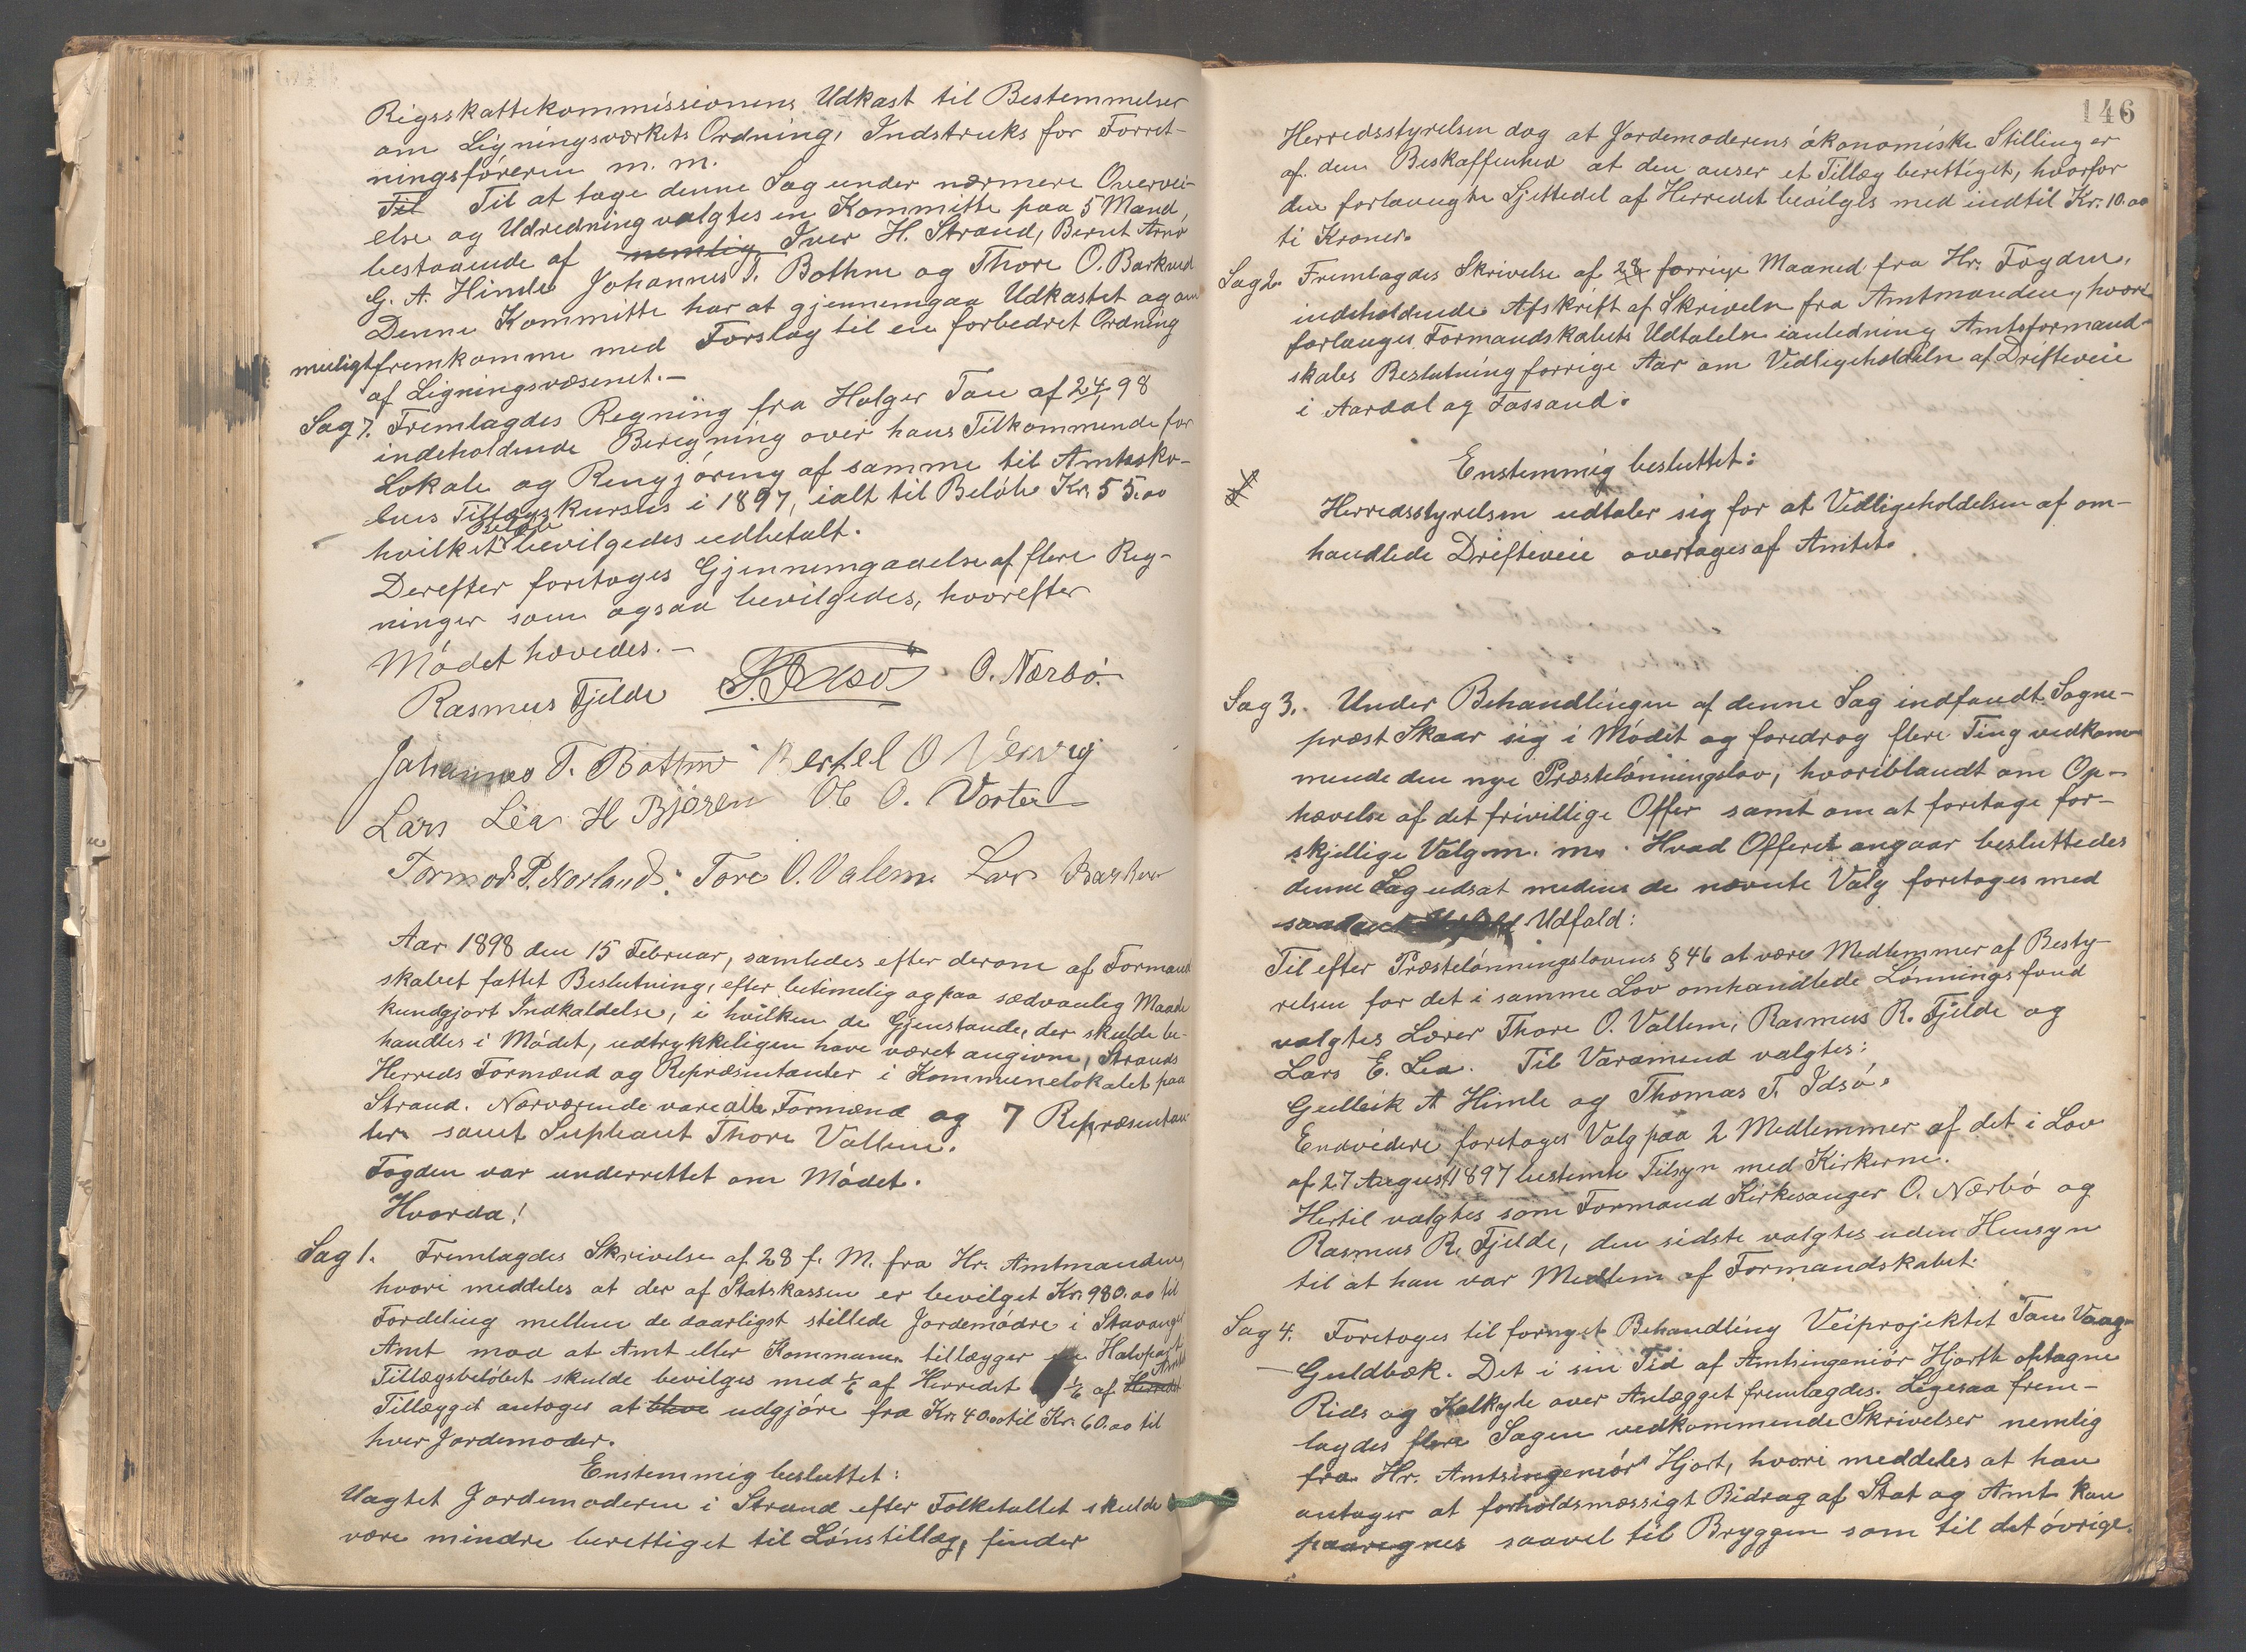 Rigsskattekommissionens Udkast til Bestemmelser
om Ligningsværkets Ordning, Indstruks for Forret-
ningsføreren m. m.
Til Til at tage denne Sag under nærmere Overvei-
else og Udredning valgtes en Kommitte paa 5 Mand,
bestaaende af nemlig Iver H. Strand, Bernt Arnø
G. A. Himle Johannes T. Bothne og Thore O. Barkved
Denne Kommitte har at gjennemgaa Udkastet og om
muligt fremkomme med Forslag til en forbedret Ordning
af Ligningsvæsenet. -
Sag 7. Fremlagdes Regning fra Holger Tau af 24/1 98
indeholdende Beregning over hans Tilkommende for
Lokale og Rengjøring af samme til Amtssko-
lens Tillægskursus i 1897, ialt til Beløb Kr. 55.00
hvilket Beløb bevilgedes udbetalt.
Derefter foretoges Gjennemgaaelse af flere Reg-
ninger som ogsaa bevilgedes, hvorefter
Mødet hævedes. -
Rasmus Fjelde O. Nærbø.
Johannes T. Bothne Bertel O Vervig
Lars Lea H Bjøren Ole O. Vorte
Tormod P. Norland. Tore O. Valem. Lars Barkve
Aar 1898 den 15 Februar, samledes efter derom af Formand
skabet fattet Beslutning, efter betimelig og paa sædvanlig Maade
kundgjort Indkaldelse, i hvilken de Gjenstande, der skulde be-
handles i Mødet, udtrykkeligen have været angivne, Strands
Herreds Formænd og Repræsentanter i Kommunelokalet paa
Strand. Nærværende vare alle Formænd og 7 Repræsentan
ter samt Supleant Thore Vallem.
Fogden var underrettet om Mødet.
Hvorda!
Sag 1. Fremlagdes Skrivelse af 28 f. M. fra Hr. Amtmanden,
hvori meddeles at der af Statskassen er bevilget Kr. 980.00 til
Fordeling mellem de daarligst stillede Jordemødre i Stavanger
Amt mod at Amt eller Kommune tillægger en Halvpart
Tillægsbeløbet skulde bevilges med 1/6 af Herredet 1/6 af Herredet Amtet
Tillægget antoges at blive udgjøre fra Kr. 40.00 til Kr. 60.00 til
hver Jordemoder.
Enstemmig besluttet:
Uagtet Jordemoderen i Strand efter Folketallet skulde
være mindre berettiget til Lønstillæg, finder
146
Herredsstyrelsen dog at Jordemoderens økonomiske Stilling er
af den Beskaffenhed at den anser et Tillæg berettiget, hvorfor
den forlangte Sjettedel af Herredet bevilges med indtil Kr. 10.00
ti Kroner.
Sag 2. Fremlagdes Skrivelse af 28 forrige Maaned fra Hr. Fogden,
indeholdende Afskrift af Skriveln fra Amtmanden, hvori
forlanges Formandskabets Udtalelse ianledning Amtsformand-
skabs Beslutning forrige Aar om Vedligeholdeln af Drifteveie
i Aardal og Fossand.
Enstemmig besluttet:
Herredsstyrelsen udtaler sig for at Vedligeholdelsen af om-
handlede Drifteveie overtages af Amtet.
Sag 3. Under Behandlingen af denne Sag indfandt Sogne-
præst Skaar sig i Mødet og foredrog flere Ting vedkom-
mende den nye Præstelønningslov, hvoriblandt om Op-
hævelse af det frivillige Offer samt om at foretage for-
skjellige Valg m. m. Hvad Offeret angaar besluttedes
denne Sag udsat medens de nævnte Valg foretoges med
Udfald:
Til efter Præstelønningslovens § 46 at være Medlemmer af Besty-
relsen for det i samme Lov omhandlede Lønningsfond
valgtes Lærer Thore O. Vallem, Rasmus R. Fjelde og
Lars E. Lea. Til Varamænd valgtes:
Gulleik A Himle og Thomas T. Idsø.
Endvidere foretoges Valg paa 2 Medlemmer af det i Lov
af 27 August 1897 bestemte Tilsyn med Kirkerne.
Hertil valgtes som Formand Kirkesanger O. Nærbø og
Rasmus R. Fjelde, den sidste valgtes uden Hensyn
til at han var Medlem af Formandskabet.
Sag 4. Foretoges til fornyet Behandling Veiprojektet Tau Vaag-
Guldbæk. Det i sin Tid af Amtsingeniør Hjorth optagne
Rids og Kalkyle over Anlægget fremlagdes. Ligesaa frem-
lagdes flere Sagen vedkommende Skrivelser nemlig
fra Hr. Amtsingeniør Hjort, hvori meddeles at han
antager at forholdsmæssigt Bidrag af Stat og Amt kan
paaregnes saavel til Bryggen som til det øvrige.